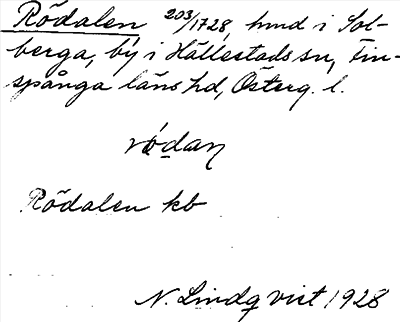 Rödalen 203/1728, hmd i Sol-
berga, by i Hällestads sn, Fin-
spånga läns hd, Österg. l.
rödan
Rödalen kb
N. Lindqvist 1928